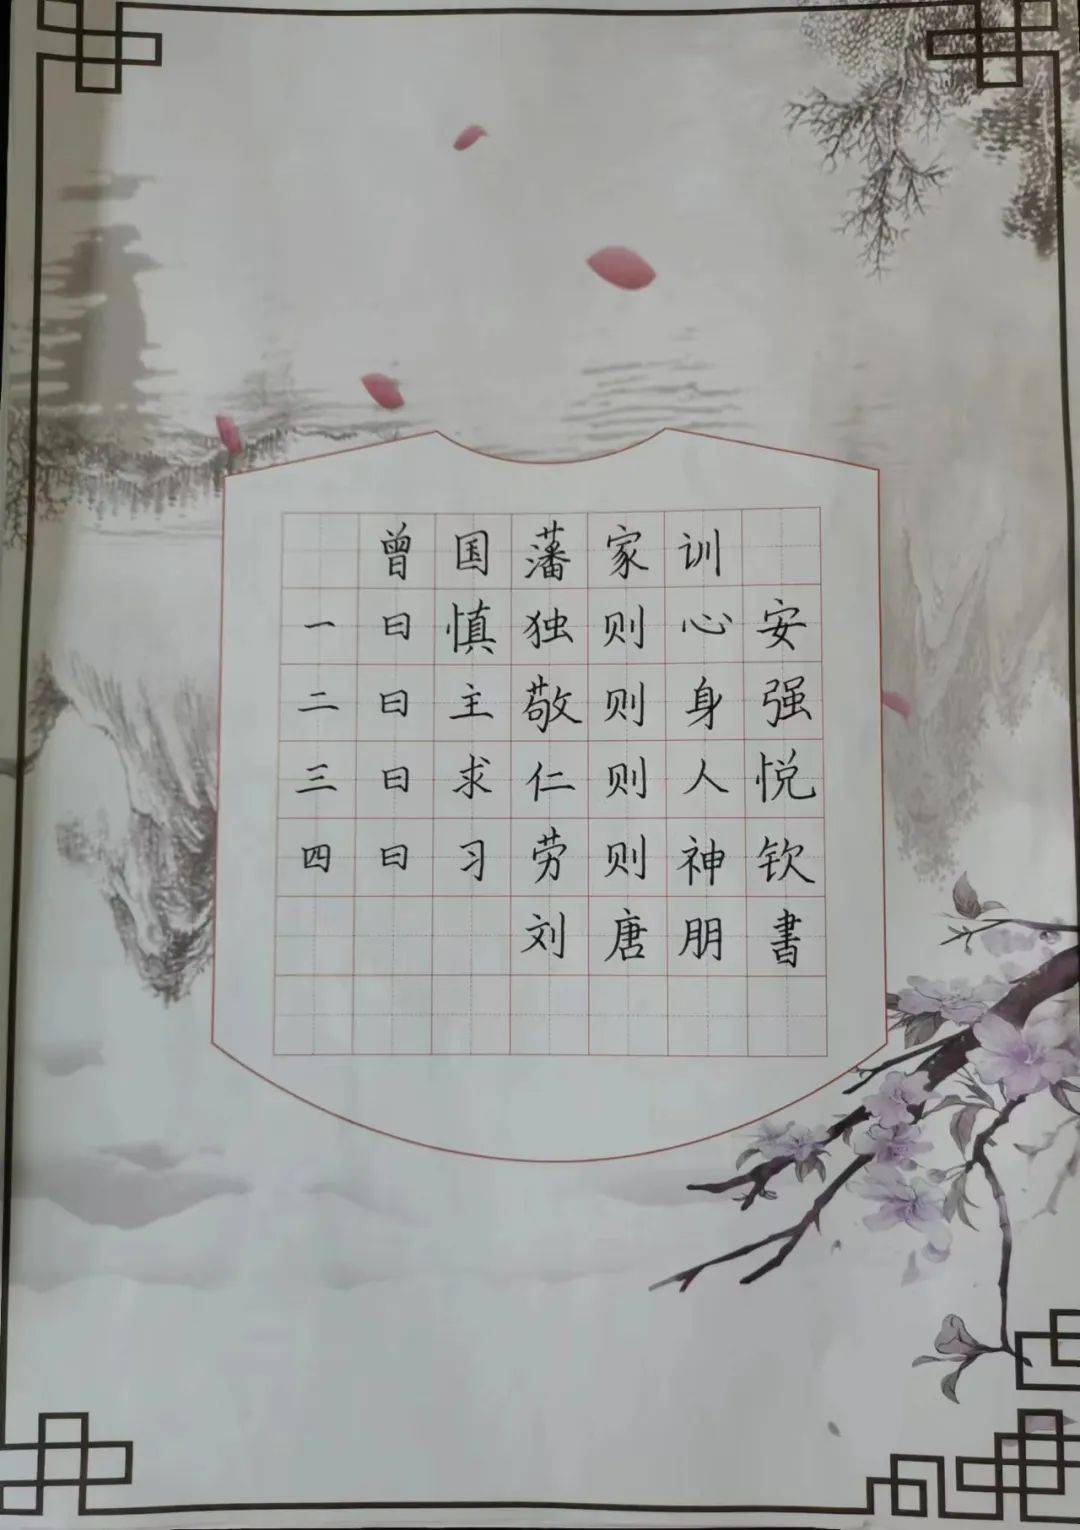 曾国藩家训
一曰慎独则心安
二曰主敬则身强
三曰求仁则人悦
四曰习劳则神钦
刘唐朋書